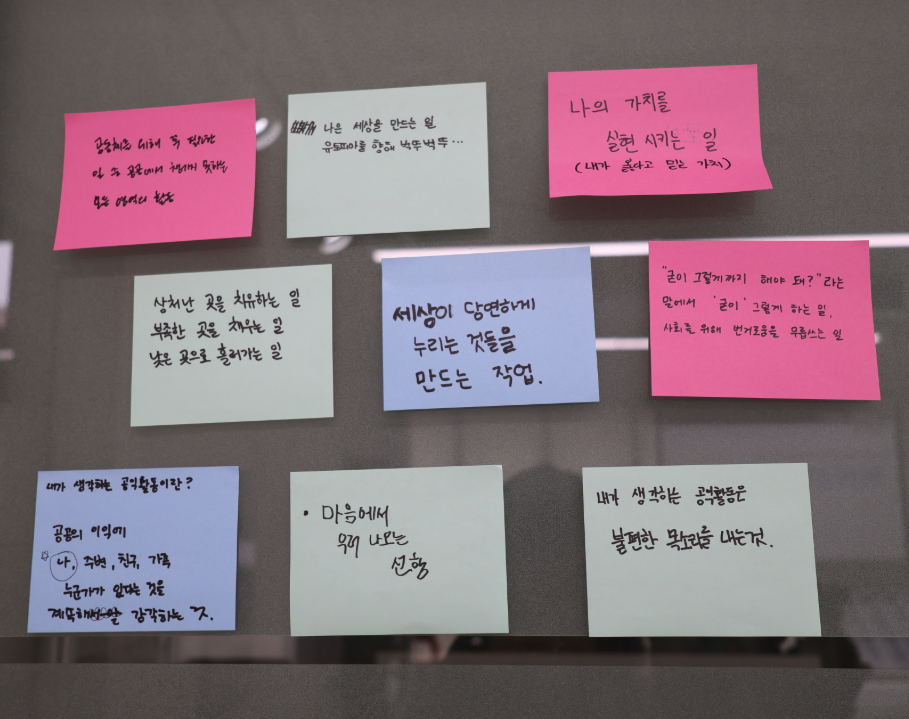 공동체를 위해 꼭 필요한
일 중 공공에서 하지 못하는
모든 영역의 활동
나은 세상을 만드는 일
유토피아를 향해 벅뚜벅뚜...
나의 가치를
실현 시키는 일
(내가 옳다고 믿는 가치)
상처난 곳을 치유하는 일
부족한 곳을 채우는 일
낮은 곳으로 흘러가는 일
세상이 당연하게
누리는 것들을
만드는 작업.
"굳이 그렇게까지 해야 돼?"라는
말에서 '굳이' 그렇게 하는 일.
사회를 위해 번거로움을 무릅쓰는 일
내가 생각하는 공익활동이란?
공공의 이익에
나, 주변, 친구, 가족
누군가가 있다는 것을
계속해서 감각하는 것.
• 마음에서
우러나오는
선행
내가 생각하는 공익활동은
불편한 목소리를 내는것.